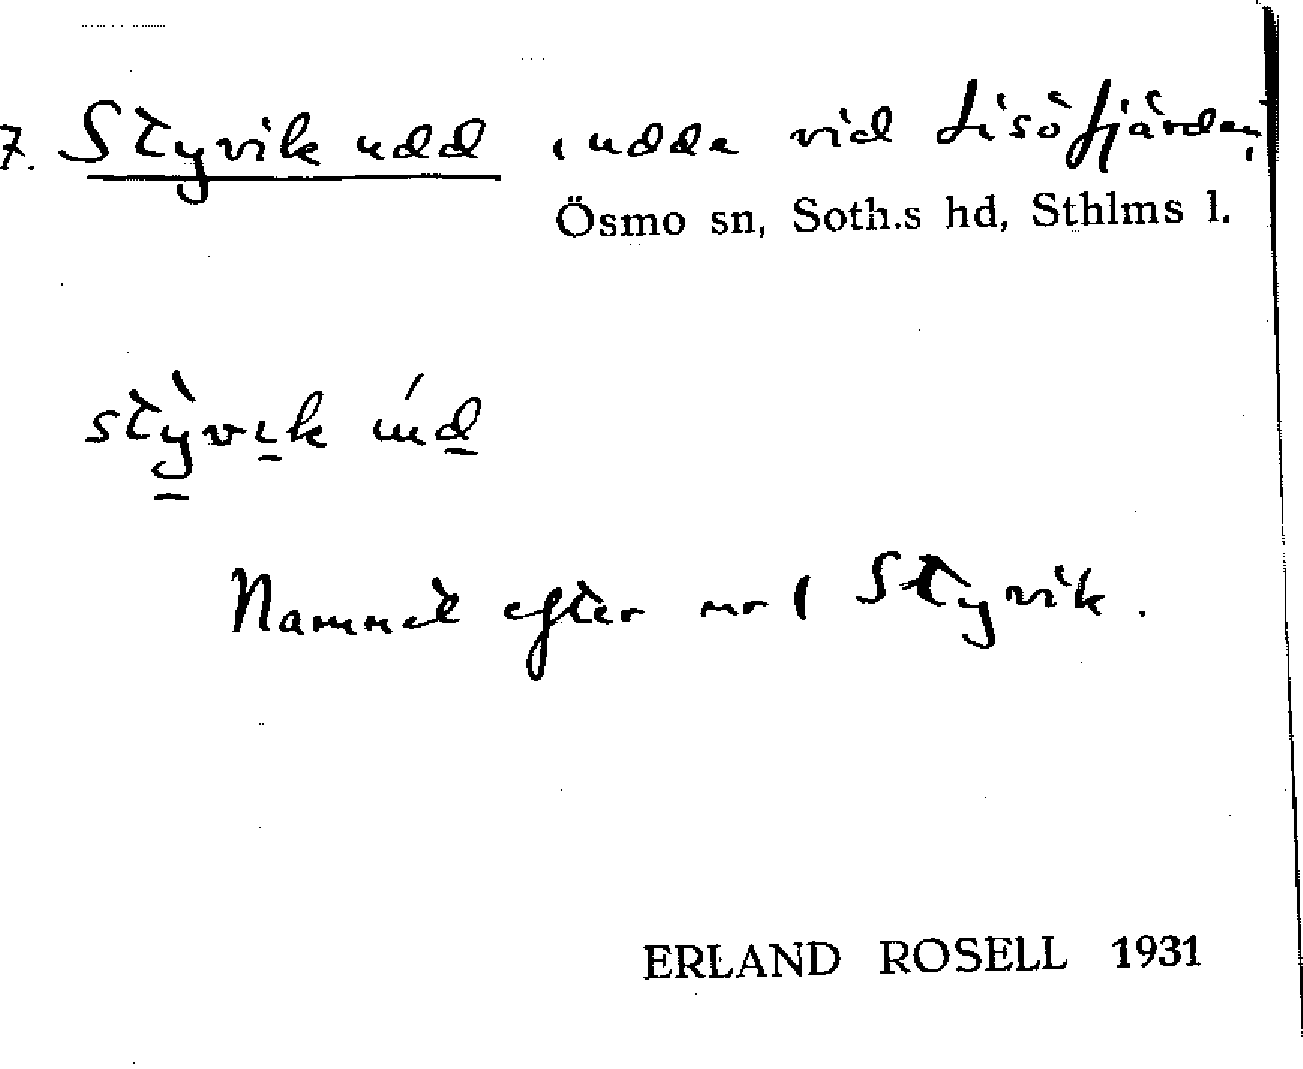 7. Styvik udd, udde vid Lisöfjärden,
Ösmo sn, Soth.s hd, Sthlms l.
stỳvik úd
Namnet efter nr 1 Styvik.
ERLAND ROSELL 1931